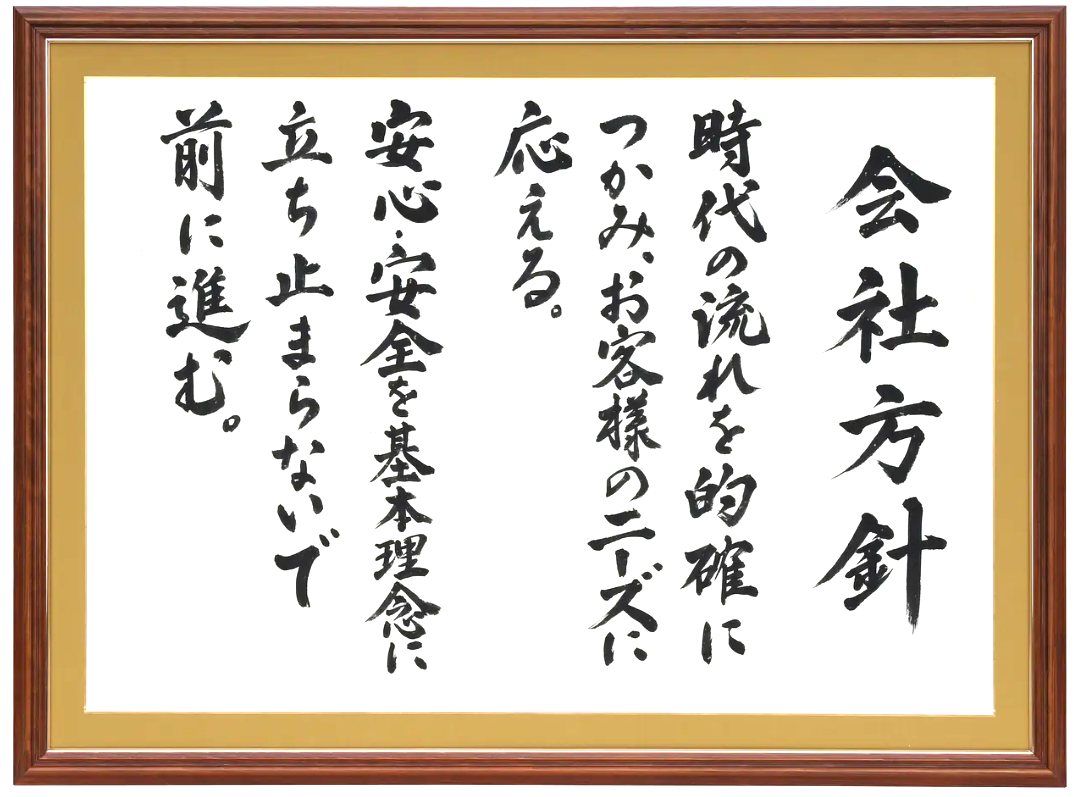 会社方針
時代の流れを的確に
つかみ、お客様のニーズに
応える。
安心・安全を基本理念に
立ち止まらないで
前に進む。